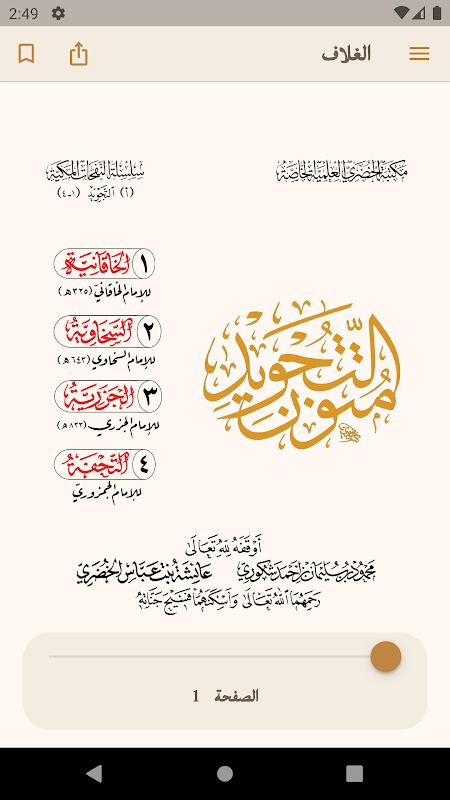 2:49
الغلاف
مكتبة الخضري العلمية الخاصة
سلسلة النفحات المكية
(٦) التجويد (١-٤)
متون التجويد
١ الخَاقَانِيَّة
للإمام الخاقانيّ (٣٢٥هـ)
٢ السَّخَاوِيَّةُ
للإمام السخاوي (٦٤٣هـ)
٣ الجَزَرِيَّةُ
للإمام الجزري (٨٣٣هـ)
٤ التُّحْفَةُ
للإمام الجمزوريّ
أَوْقَفَهُ لِلَّهِ تَعَالَى
محمود بن سليمان بن أحمد شكوري عائشة بنت عباس الخضري
رحمهما الله تعالى وأسكنهما فسيح جناته
الصفحة 1